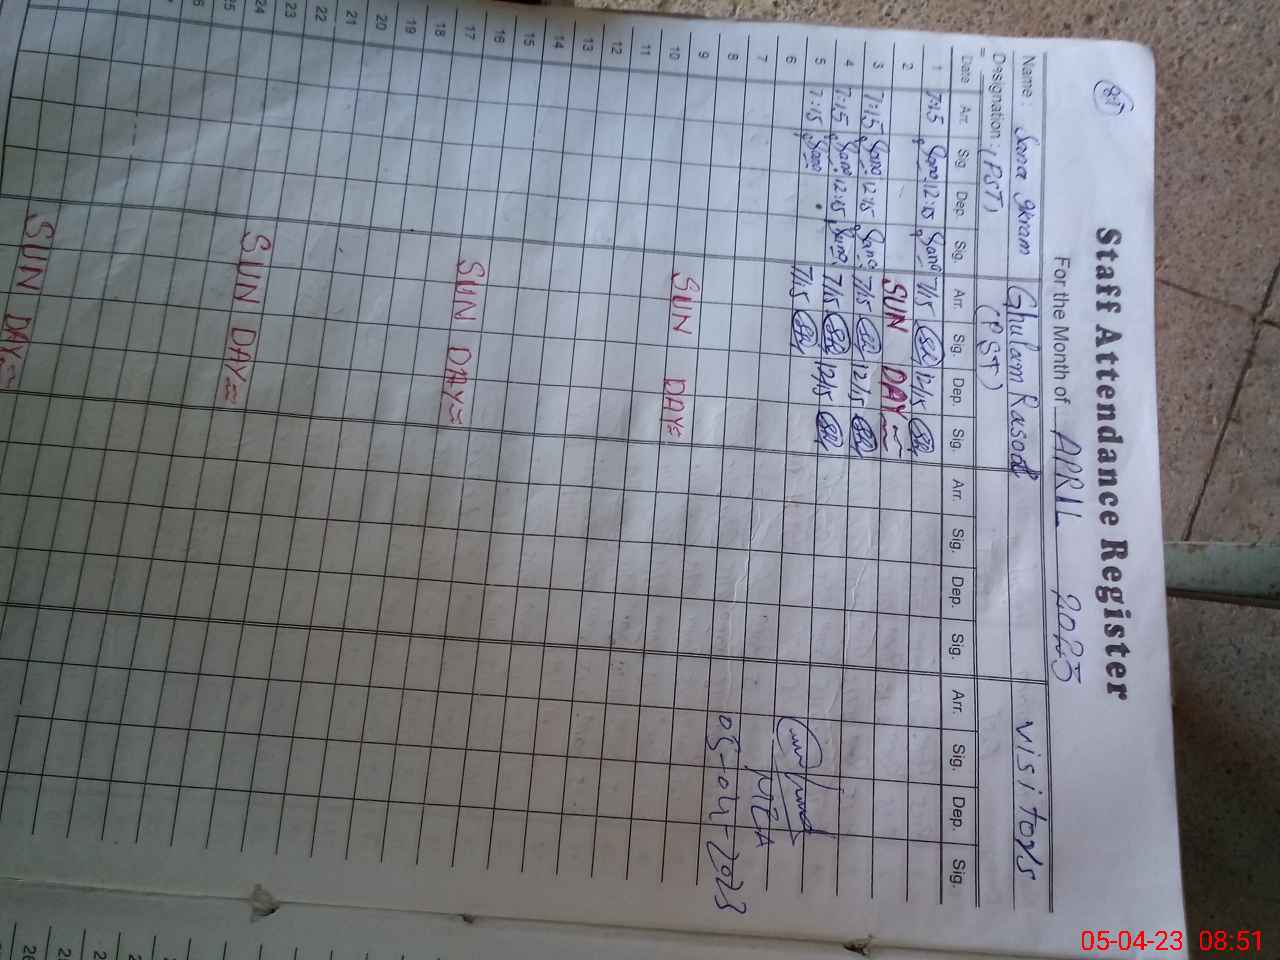 87
Staff Attendance Register
For the Month of APRIL 2023
Name : Sana Ikram Ghulam Rasool visitors
Designation : (PST) (PST)
Date Arr. Sig. Dep. Sig. Arr. Sig. Dep. Sig. Arr. Sig. Dep. Sig. Arr. Sig. Dep. Sig.
1 7:15 Sana 12:15 Sana 7/15 12/15
2 SUN DAY
3 7:15 Sana 12:15 Sana 7/15 12/15
4 7:15 Sana 12:15 Sana 7/15 12/15
5 7:15 Sana 7/15
6
7 MEA
8 05-04-2023
9
10 SUN DAY=
11
12
13
14
15
16
17 SUN DAY=
18
19
20
21
22
23
24 SUN DAY=
25
26
SUN DAY=
05-04-23 08:51